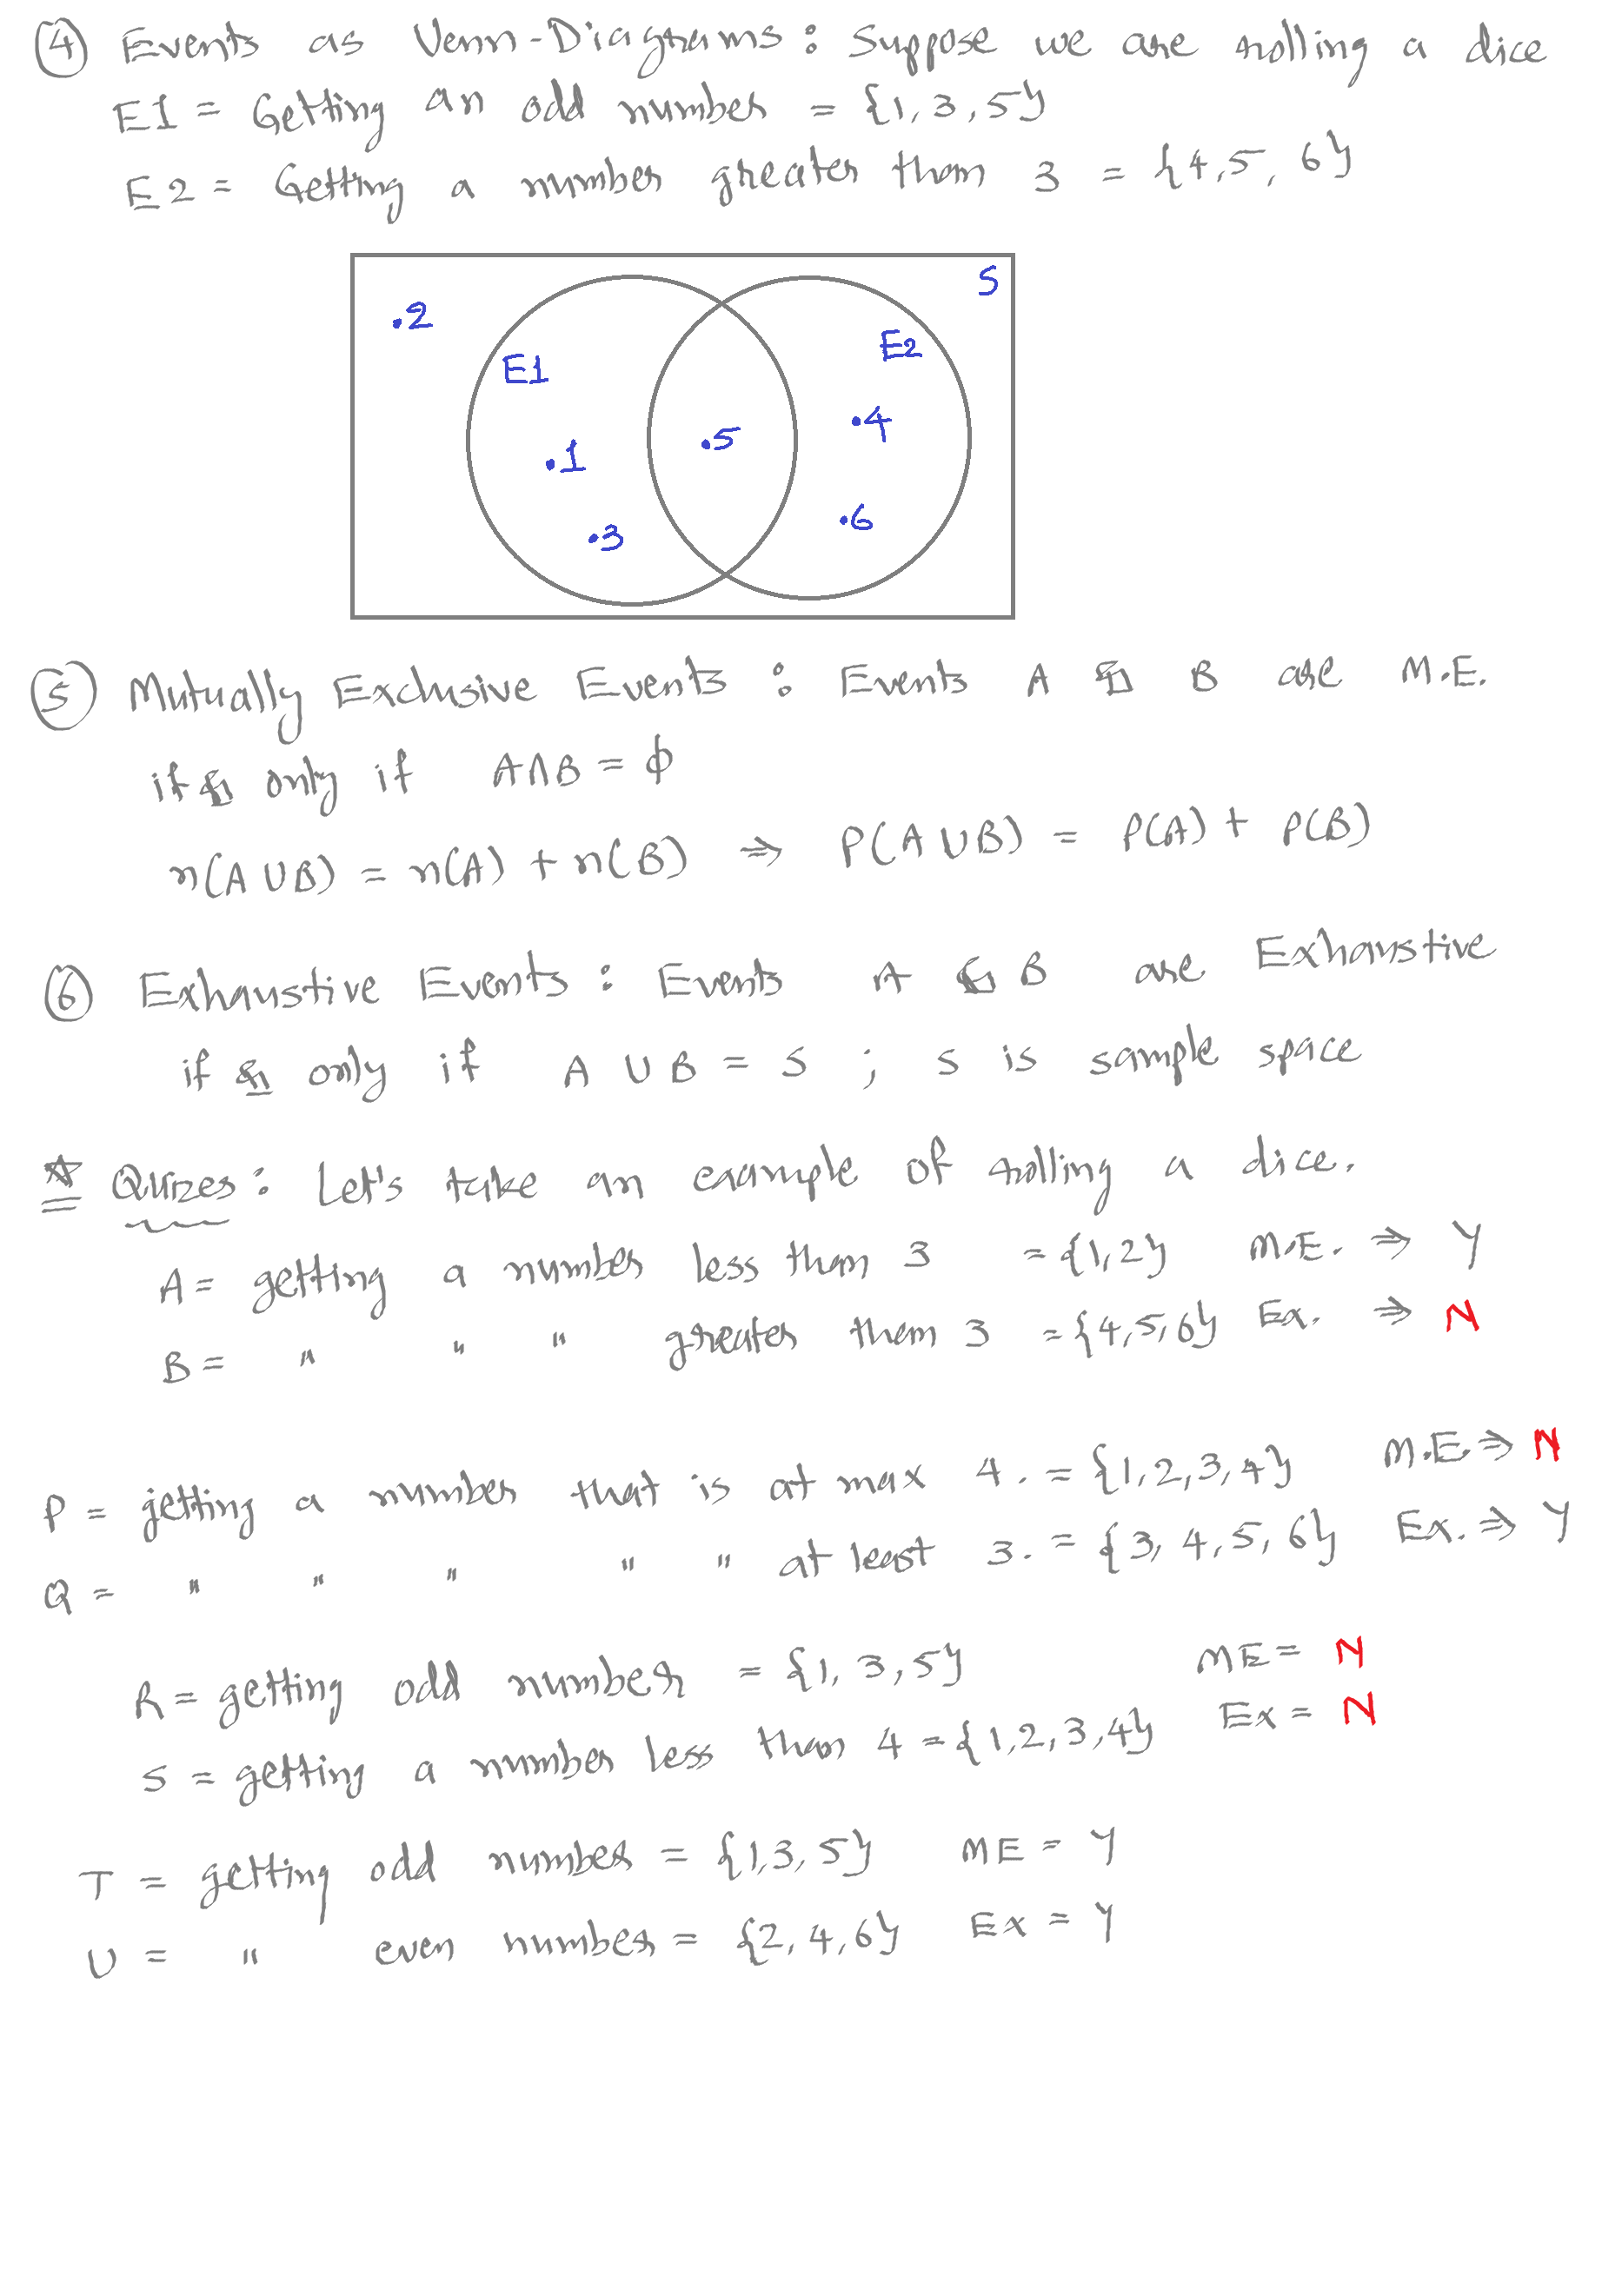 ④ Events as Venn-Diagrams : Suppose we are rolling a dice
E1 = Getting an odd number = {1, 3, 5}
E2 = Getting a number greater than 3 = {4, 5, 6}
S
.2
E1
E2
.1
.5
.4
.3
.6
⑤ Mutually Exclusive Events : Events A & B are M.E.
if & only if A∩B = ϕ
n(A∪B) = n(A) + n(B) ⇒ P(A∪B) = P(A) + P(B)
⑥ Exhaustive Events : Events A & B are Exhaustive
if & only if A ∪ B = S ; S is sample space
☆ Quizes : Let's take an example of rolling a dice.
A = getting a number less than 3 = {1, 2} M.E. ⇒ Y
B = " " " greater than 3 = {4, 5, 6} Ex. ⇒ N
P = getting a number that is at max 4. = {1, 2, 3, 4} M.E. ⇒ N
Q = " " " " " at least 3. = {3, 4, 5, 6} Ex. ⇒ Y
R = getting odd number = {1, 3, 5} ME = N
S = getting a number less than 4 = {1, 2, 3, 4} Ex = N
T = getting odd number = {1, 3, 5} ME = Y
U = " even number = {2, 4, 6} Ex = Y